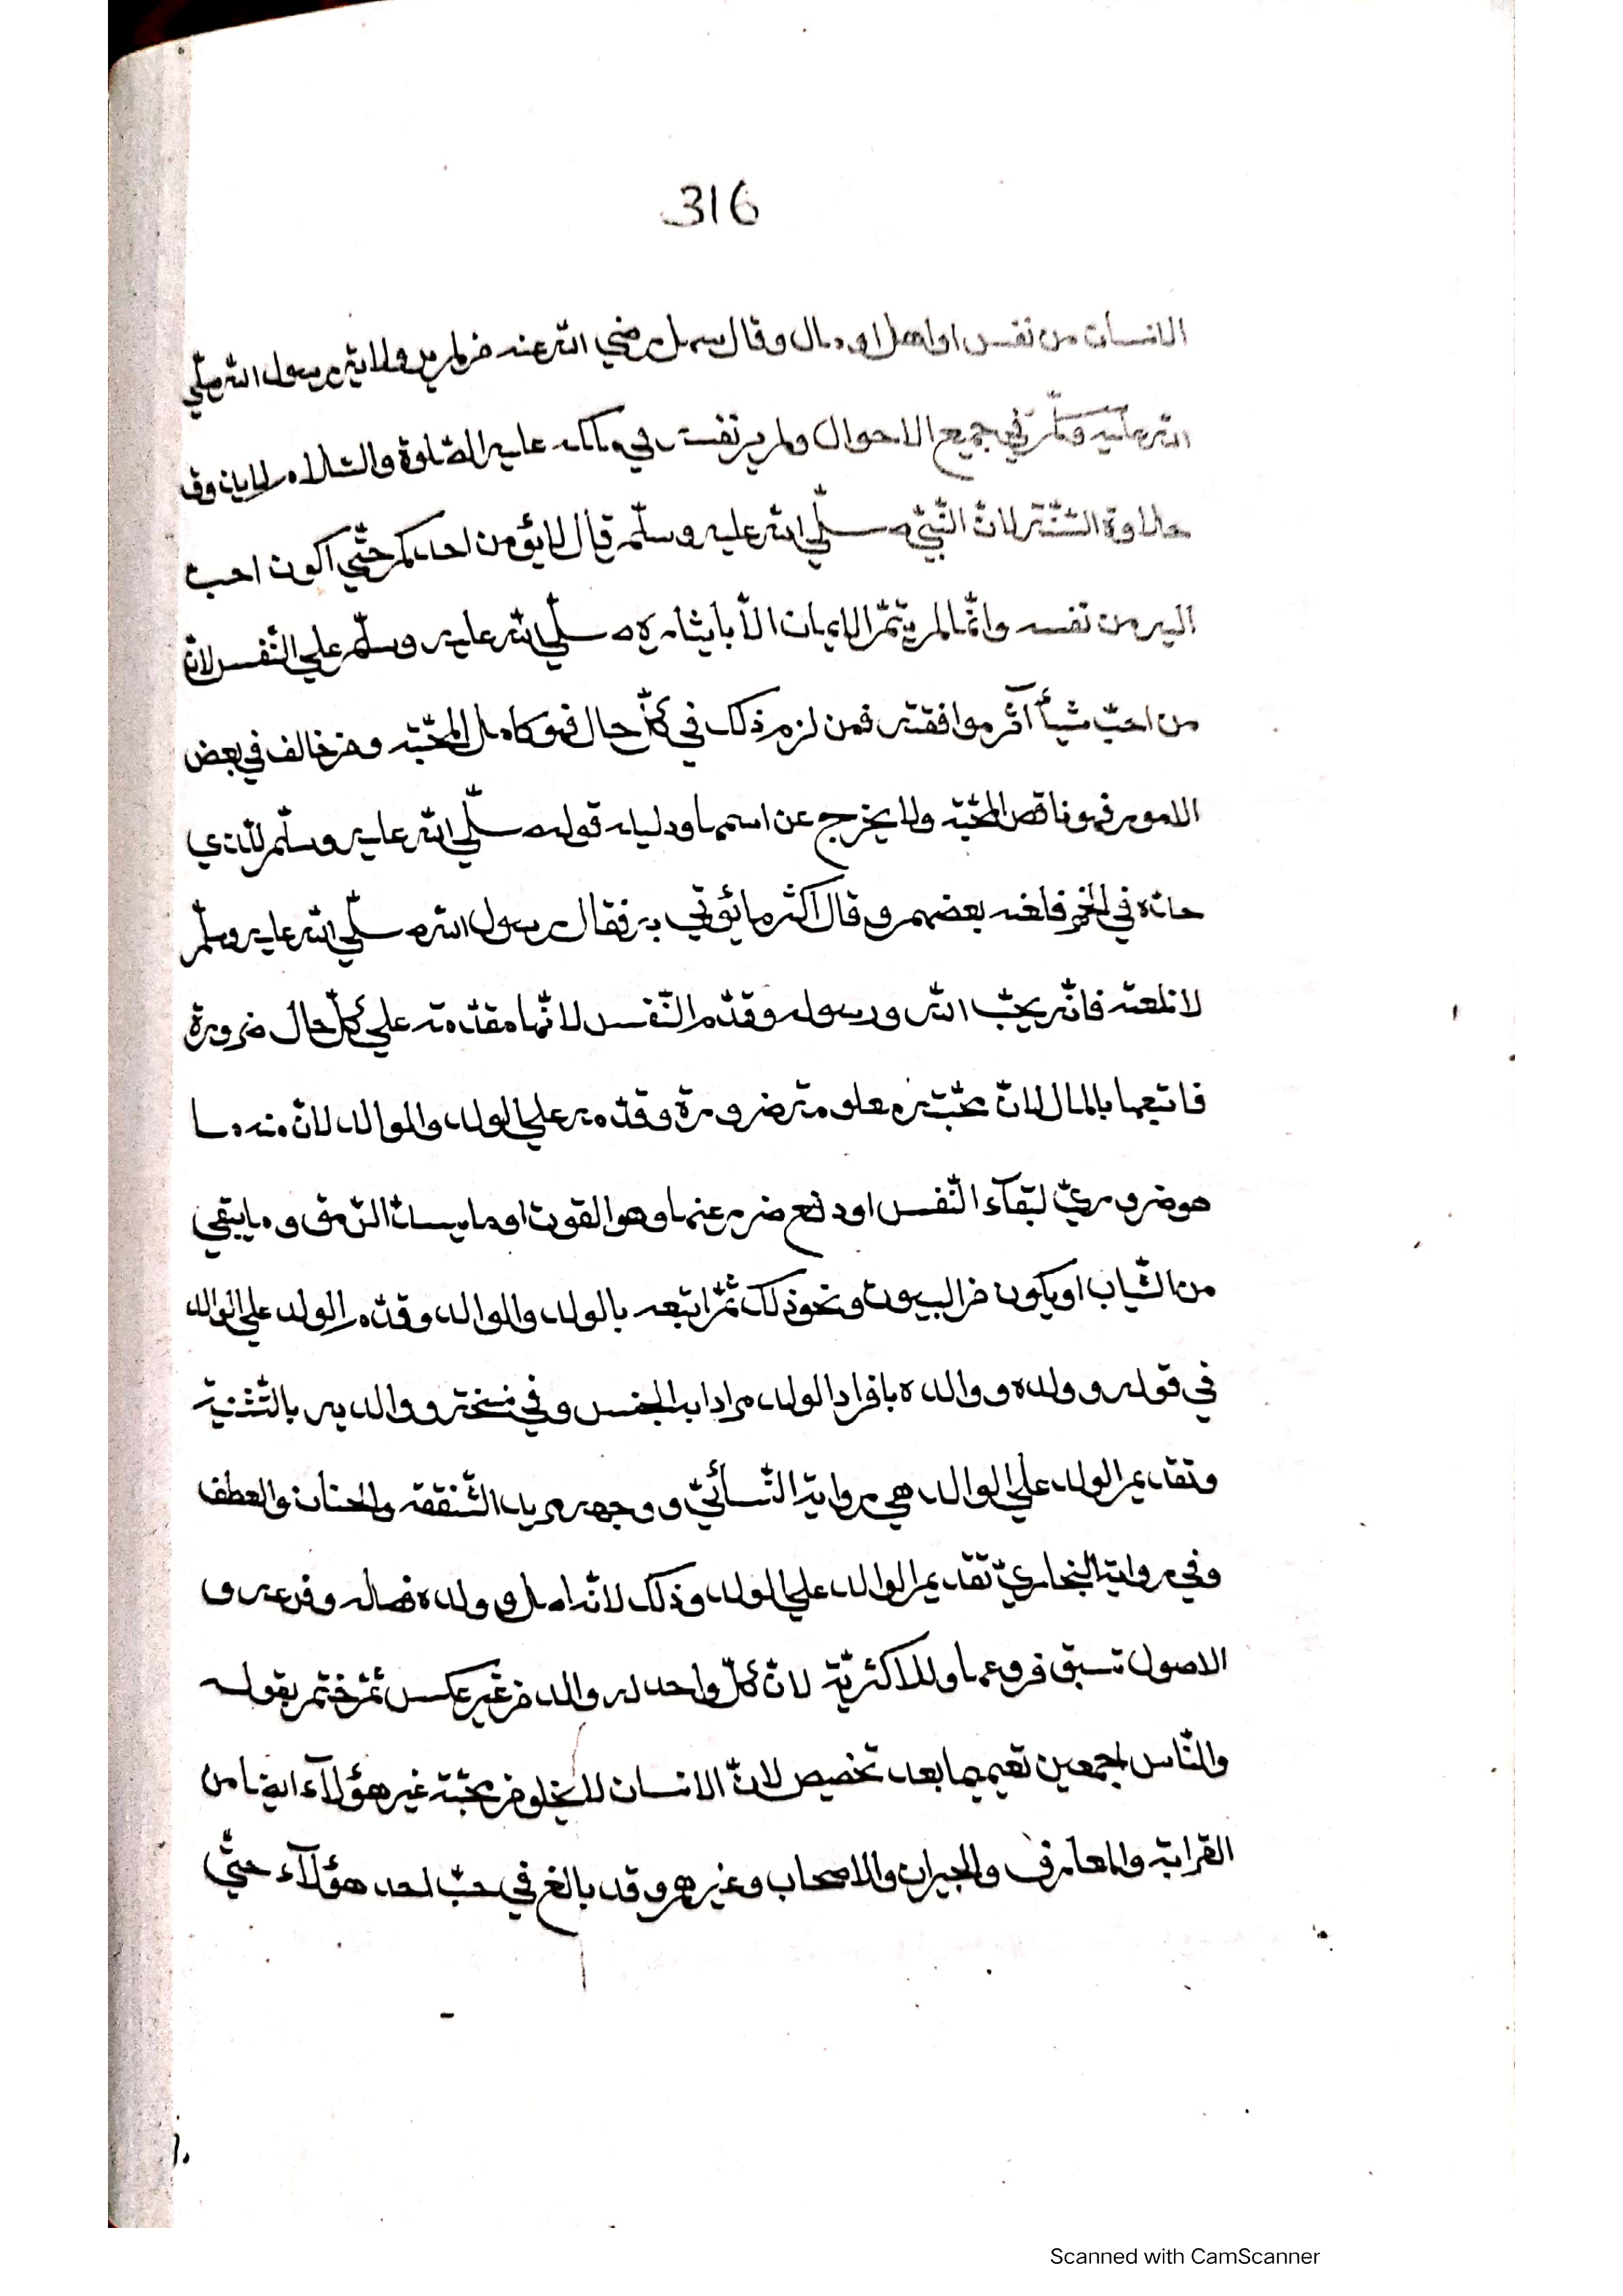 316
الانسان من نفس او اهل او مال وقال سهل رضي الله عنه من لم ير ولاية رسول الله صلّي
الله عليه وسلّم في جميع الاحوال ولم ير نفسه في ملكه عليه الصّلوة والسّلام لا يذوق
حلاوة السّنّة لانّ النّبيّ صلّي الله عليه وسلّم قال لا يؤمن احدكم حتّي اكون احب
اليه من نفسه وانّما لم يتمّ الايمان الاّ بايثاره صلّي الله عليه وسلّم علي النّفس لانّ
من احبّ شيأ آثر موافقته فمن لزم ذلك في كلّ حال فهو كامل المحبّة ومن خالف في بعض
الامور فهو ناقص المحبّة ولا يخرج عن اسمها ودليله قوله صلّي الله عليه وسلّم للّذي
حدّه في الخمر فلعنه بعضهم وقال اكثر ما يؤتي به فقال رسول الله صلّي الله عليه وسلّم
لا تلعنه فانّه يحبّ الله ورسوله وقدّم النّفس لانّها مقدّمة علي كلّ حال ضرورة
فاتبعها بالمال لانّ محبّته معلومة ضرورة وقدّمه علي الولد والوالد لانّ منه ما
هو ضروريّ لبقآء النّفس او دفع ضرر عنها وهو القوت او ما يسدّ الرّمق وما يبقي
من الثّياب او يكون من البيوت ونحو ذلك ثمّ اتبعه بالولد والوالد وقدّم الولد علي الوالد
في قوله وولده ووالده بافراد الولد مرادا به الجنس وفي نسخة ووالديه بالتّثنية
وتقديم الولد علي الوالد هي رواية النّسائيّ ووجهه مزيد الشّفقة والحنان والعطف
وفي رواية البخاريّ تقديم الوالد علي الولد وذلك لانّه اصل وولده فصله وفرعه و
الاصول تسبق فروعها وللاكثريّة لانّ كلّ واحد له والد من غير عكس ثمّ ختم بقوله
والنّاس اجمعين تعميما بعد تخصيص لانّ الانسان لا يخلو من محبّة غير هؤلآء ايضا من
القرابة والمعارف والجيران والاصحاب وغيرهم وقد بالغ في حبّ احد هؤلآء حتّي
Scanned with CamScanner